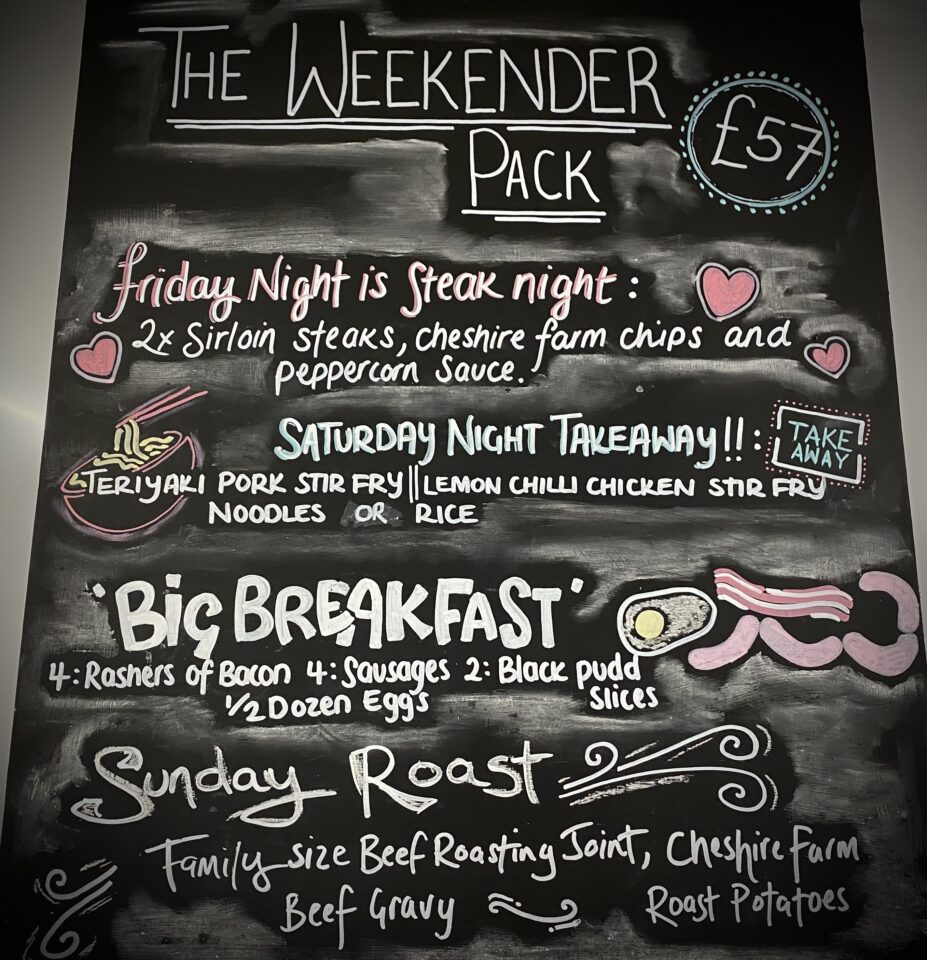 THE WEEKENDER
PACK
£57
Friday Night is Steak night :
2x Sirloin steaks, cheshire farm chips and
peppercorn Sauce.
SATURDAY NIGHT TAKEAWAY!! :
TAKE
AWAY
TERIYAKI PORK STIR FRY || LEMON CHILLI CHICKEN STIR FRY
NOODLES OR RICE
'BIG BREAKFAST'
4: Rashers of Bacon 4: Sausages 2: Black pudd
1/2 Dozen Eggs slices
Sunday Roast
Family size Beef Roasting Joint, Cheshire Farm
Beef Gravy Roast Potatoes